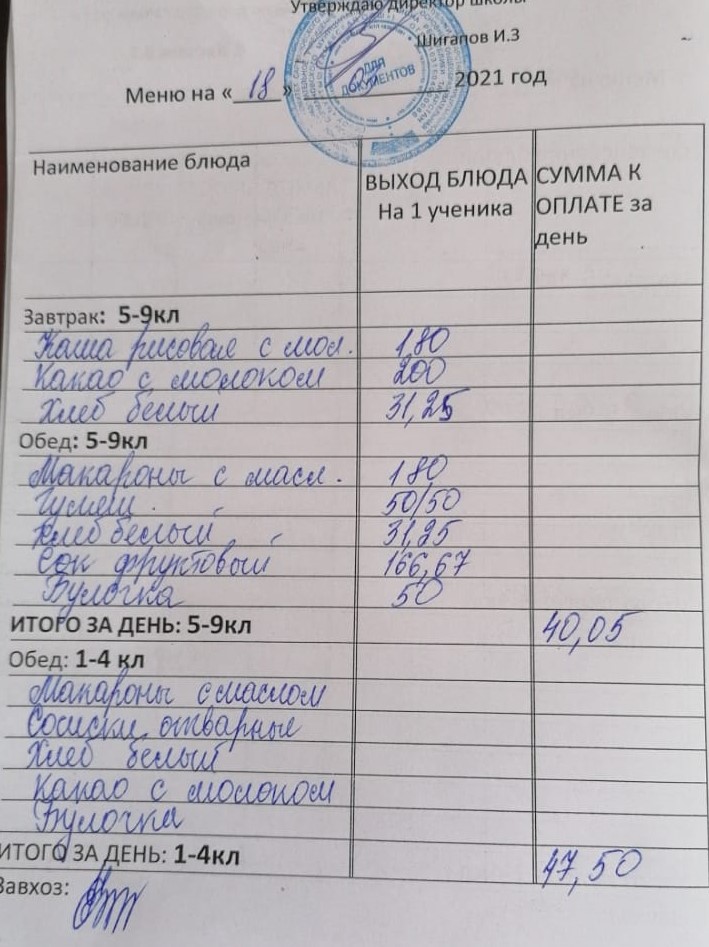 Утверждаю директор школы
Шигапов И.З
ДЛЯ
ДОКУМЕНТОВ
Меню на «18» 2021 год
Наименование блюда
ВЫХОД БЛЮДА
На 1 ученика
СУММА К
ОПЛАТЕ за
день
Завтрак: 5-9кл
Каша рисовая с мол. 180
Какао с молоком 200
Хлеб белый 31,25
Обед: 5-9кл
Макароны с масл. 180
Гуляш 50/50
Хлеб белый 31,25
Сок фруктовый 166,67
Булочка 50
ИТОГО ЗА ДЕНЬ: 5-9кл 40,05
Обед: 1-4 кл
Макароны с маслом
Сосиски отварные
Хлеб белый
Какао с молоком
Булочка
ИТОГО ЗА ДЕНЬ: 1-4кл 47,50
Завхоз: